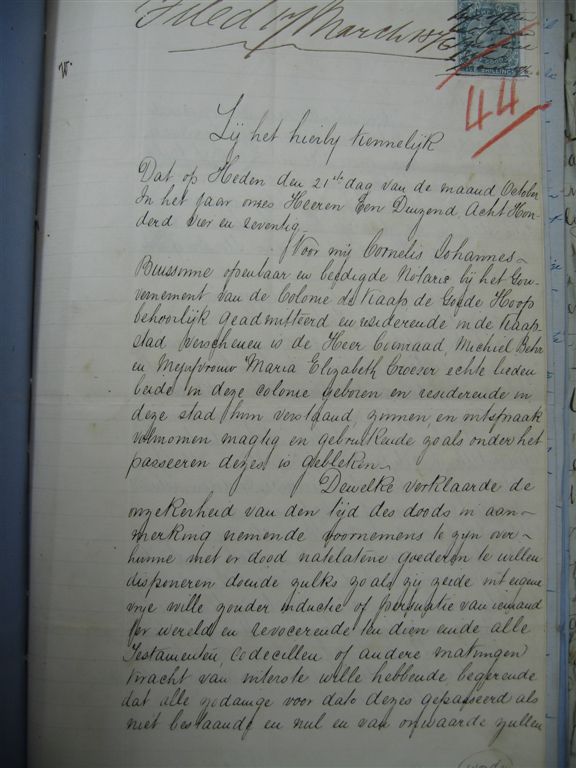 Filed 17 March 187
SHILLINGS
44
W.
Zij het hierby Kennelijk
Dat op Heden den 21ste dag van de maand October
In het jaar onzes Heeren Een Duizend, Acht Hon-
derd Vier en zeventig.
Voor mij Cornelis Johannes
Buissinne openbaar en beedigde Notaris bij het Gou-
vernement van de Colonie de Kaap de Goede Hoop
behoorlijk geadmitteerd en resideerende in de Kaap
stad verschenen is de Heer Coenraad, Michiel Behr
en Mejufvrouw Maria Elizabeth Croeser echte lieden
beide in deze colonie geboren en resideerende in
deze stad hun verstaand, zinnen, en uitspraak
volkomen magtig en gebruikende zoals onder het
passeeren dezes is gebleken
Dewelke verklaarde de
onzekerheid van den tijd des doods in aan-
merking nemende voornemens te zyn over
hunne met er dood natelatene goederen te willen
disponeren doende zulks zoals zij zeide uit eigene
vrije wille zonder inductie of persuatie van iemand
ter wereld en revocerende ten dien einde alle
Testamenten, Codecillen of andere makingen
kracht van uiterste wille hebbende begerende
dat alle zodanige voor dato dezes gepasseerd als
niet bestaande en nul en van onwaarde zullen